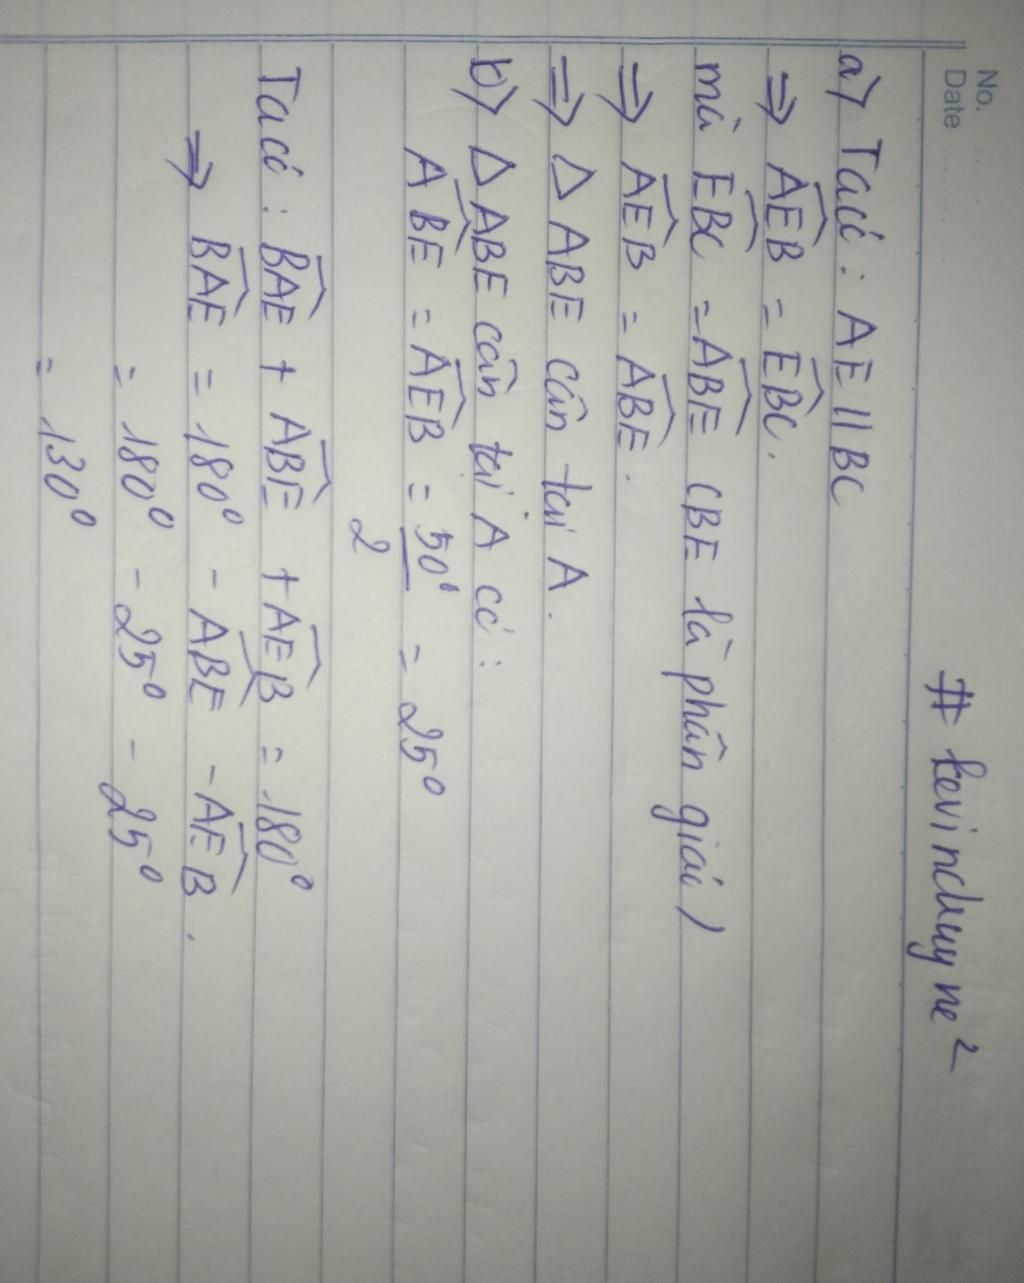 No. ......
Date ........
# kevinduy ne²
a) Ta có: AE // BC
⇒ \widehat{AEB} = \widehat{EBC}.
mà \widehat{EBC} = \widehat{ABE} (BE là phân giác)
⇒ \widehat{AEB} = \widehat{ABE}.
⇒ Δ ABE cân tại A.
b) Δ ABE cân tại A có:
\widehat{ABE} = \widehat{AEB} = \frac{50°}{2} = 25°
Ta có: \widehat{BAE} + \widehat{ABE} + \widehat{AEB} = 180°
⇒ \widehat{BAE} = 180° - \widehat{ABE} - \widehat{AEB}.
= 180° - 25° - 25°
= 130°